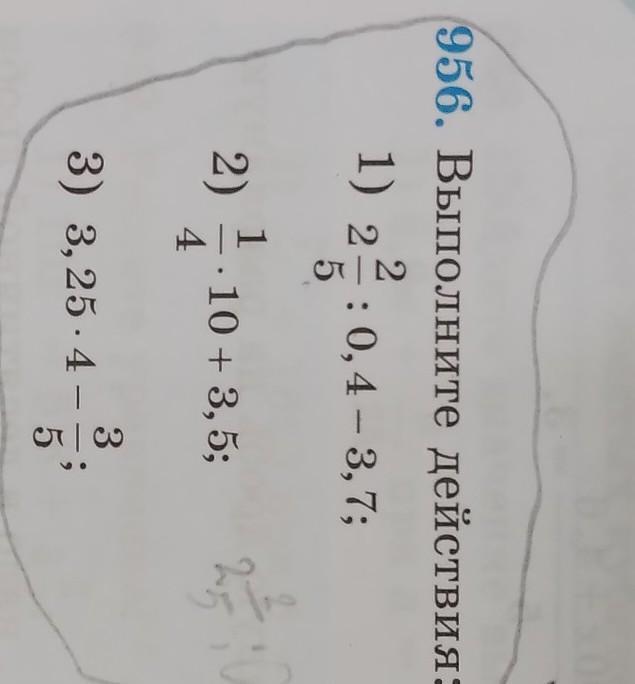 956. Выполните действия:
1) 2 2/5 : 0,4 – 3,7;
2) 1/4 · 10 + 3,5;
3) 3,25 · 4 – 3/5;
2 2/5 : 0